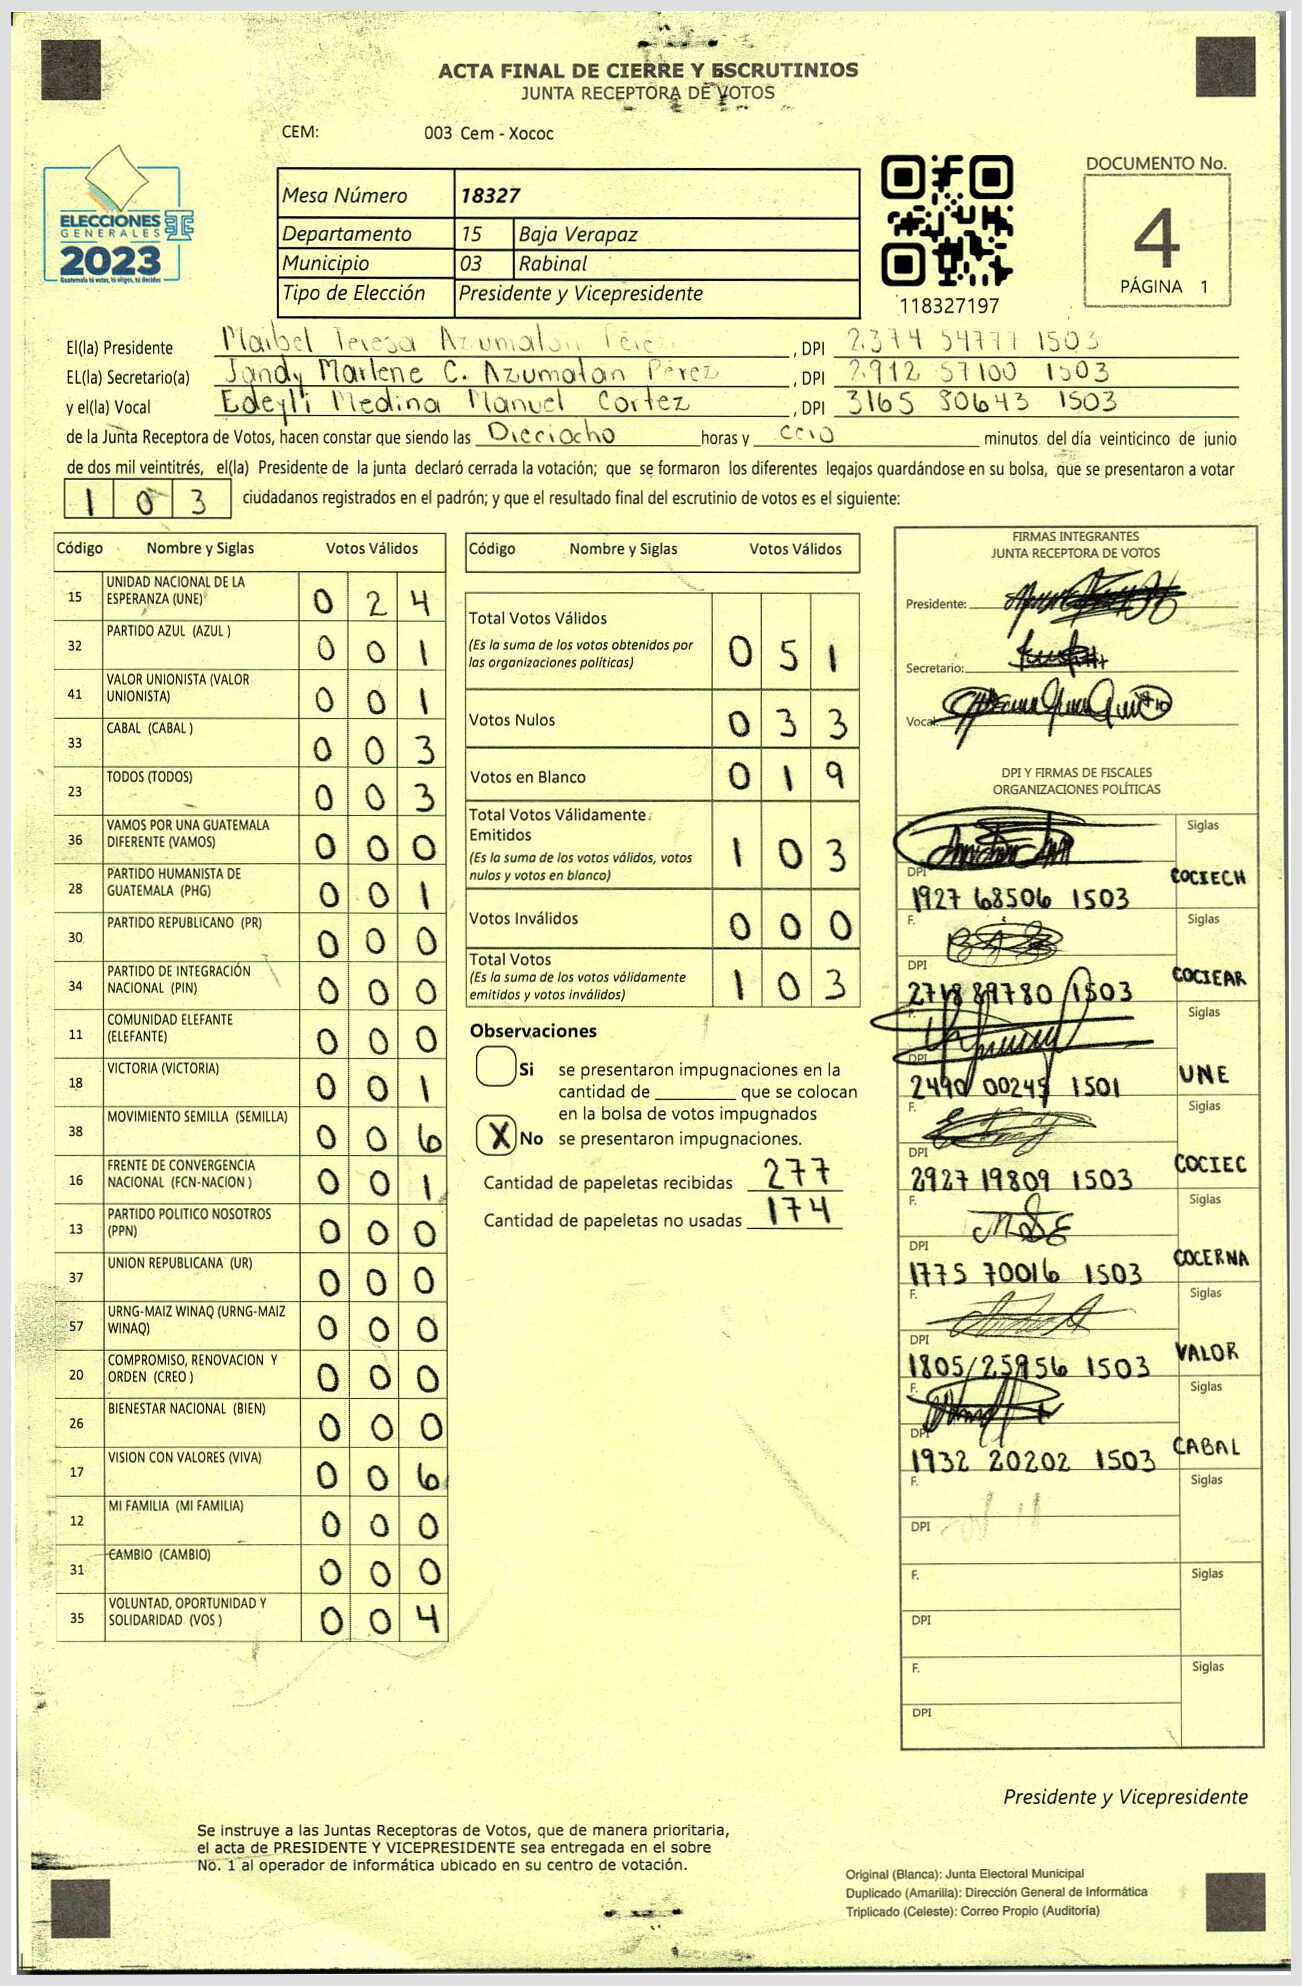 ACTA FINAL DE CIERRE Y ESCRUTINIOS
JUNTA RECEPTORA DE VOTOS
CEM: 003 Cem - Xococ
ELECCIONES
GENERALES
2023
Guatemala tú votas, tú eliges, tú decides
Mesa Número 18327
Departamento 15 Baja Verapaz
Municipio 03 Rabinal
Tipo de Elección Presidente y Vicepresidente
118327197
DOCUMENTO No.
4
PÁGINA 1
El(la) Presidente Maibel Teresa Azumatan Pérez, DPI 2374 54777 1503
EL(la) Secretario(a) Jandy Marlene C. Azumatan Pérez, DPI 2912 57100 1503
y el(la) Vocal Edeyli Medina Manuel Cortez, DPI 3165 80643 1503
de la Junta Receptora de Votos, hacen constar que siendo las Dieciocho horas y cero minutos del día veinticinco de junio
de dos mil veintitrés, el(la) Presidente de la junta declaró cerrada la votación; que se formaron los diferentes legajos quardándose en su bolsa, que se presentaron a votar
103 ciudadanos registrados en el padrón; y que el resultado final del escrutinio de votos es el siguiente:
Código Nombre y Siglas Votos Válidos
15 UNIDAD NACIONAL DE LA
ESPERANZA (UNE) 0 2 4
32 PARTIDO AZUL (AZUL ) 0 0 1
41 VALOR UNIONISTA (VALOR
UNIONISTA) 0 0 1
33 CABAL (CABAL ) 0 0 3
23 TODOS (TODOS) 0 0 3
36 VAMOS POR UNA GUATEMALA
DIFERENTE (VAMOS) 0 0 0
28 PARTIDO HUMANISTA DE
GUATEMALA (PHG) 0 0 1
30 PARTIDO REPUBLICANO (PR) 0 0 0
34 PARTIDO DE INTEGRACIÓN
NACIONAL (PIN) 0 0 0
11 COMUNIDAD ELEFANTE
(ELEFANTE) 0 0 0
18 VICTORIA (VICTORIA) 0 0 1
38 MOVIMIENTO SEMILLA (SEMILLA) 0 0 6
16 FRENTE DE CONVERGENCIA
NACIONAL (FCN-NACION ) 0 0 1
13 PARTIDO POLITICO NOSOTROS
(PPN) 0 0 0
37 UNION REPUBLICANA (UR) 0 0 0
57 URNG-MAIZ WINAQ (URNG-MAIZ
WINAQ) 0 0 0
20 COMPROMISO, RENOVACION Y
ORDEN (CREO ) 0 0 0
26 BIENESTAR NACIONAL (BIEN) 0 0 0
17 VISION CON VALORES (VIVA) 0 0 6
12 MI FAMILIA (MI FAMILIA) 0 0 0
31 CAMBIO (CAMBIO) 0 0 0
35 VOLUNTAD, OPORTUNIDAD Y
SOLIDARIDAD (VOS ) 0 0 4
Código Nombre y Siglas Votos Válidos
Total Votos Válidos
(Es la suma de los votos obtenidos por
las organizaciones políticas) 0 5 1
Votos Nulos 0 3 3
Votos en Blanco 0 1 9
Total Votos Válidamente
Emitidos
(Es la suma de los votos válidos, votos
nulos y votos en blanco) 1 0 3
Votos Inválidos 0 0 0
Total Votos
(Es la suma de los votos válidamente
emitidos y votos inválidos) 1 0 3
Observaciones
Si se presentaron impugnaciones en la
cantidad de ________ que se colocan
en la bolsa de votos impugnados
X No se presentaron impugnaciones.
Cantidad de papeletas recibidas 277
Cantidad de papeletas no usadas 174
FIRMAS INTEGRANTES
JUNTA RECEPTORA DE VOTOS
Presidente:
Secretario:
Vocal:
DPI Y FIRMAS DE FISCALES
ORGANIZACIONES POLÍTICAS
Siglas
DPI COCIECH
1927 68506 1503
F. Siglas
DPI COCIEAR
2718 89780 1503
F. Siglas
DPI UNE
2490 00245 1501
F. Siglas
DPI COCIEC
2927 19809 1503
F. Siglas
DPI COCERNA
1775 70016 1503
F. Siglas
DPI VALOR
1805/25956 1503
F. Siglas
DPI CABAL
1932 20202 1503
F. Siglas
DPI
F. Siglas
DPI
F. Siglas
DPI
Presidente y Vicepresidente
Se instruye a las Juntas Receptoras de Votos, que de manera prioritaria,
el acta de PRESIDENTE Y VICEPRESIDENTE sea entregada en el sobre
No. 1 al operador de informática ubicado en su centro de votación.
Original (Blanca): Junta Electoral Municipal
Duplicado (Amarilla): Dirección General de Informática
Triplicado (Celeste): Correo Propio (Auditoría)